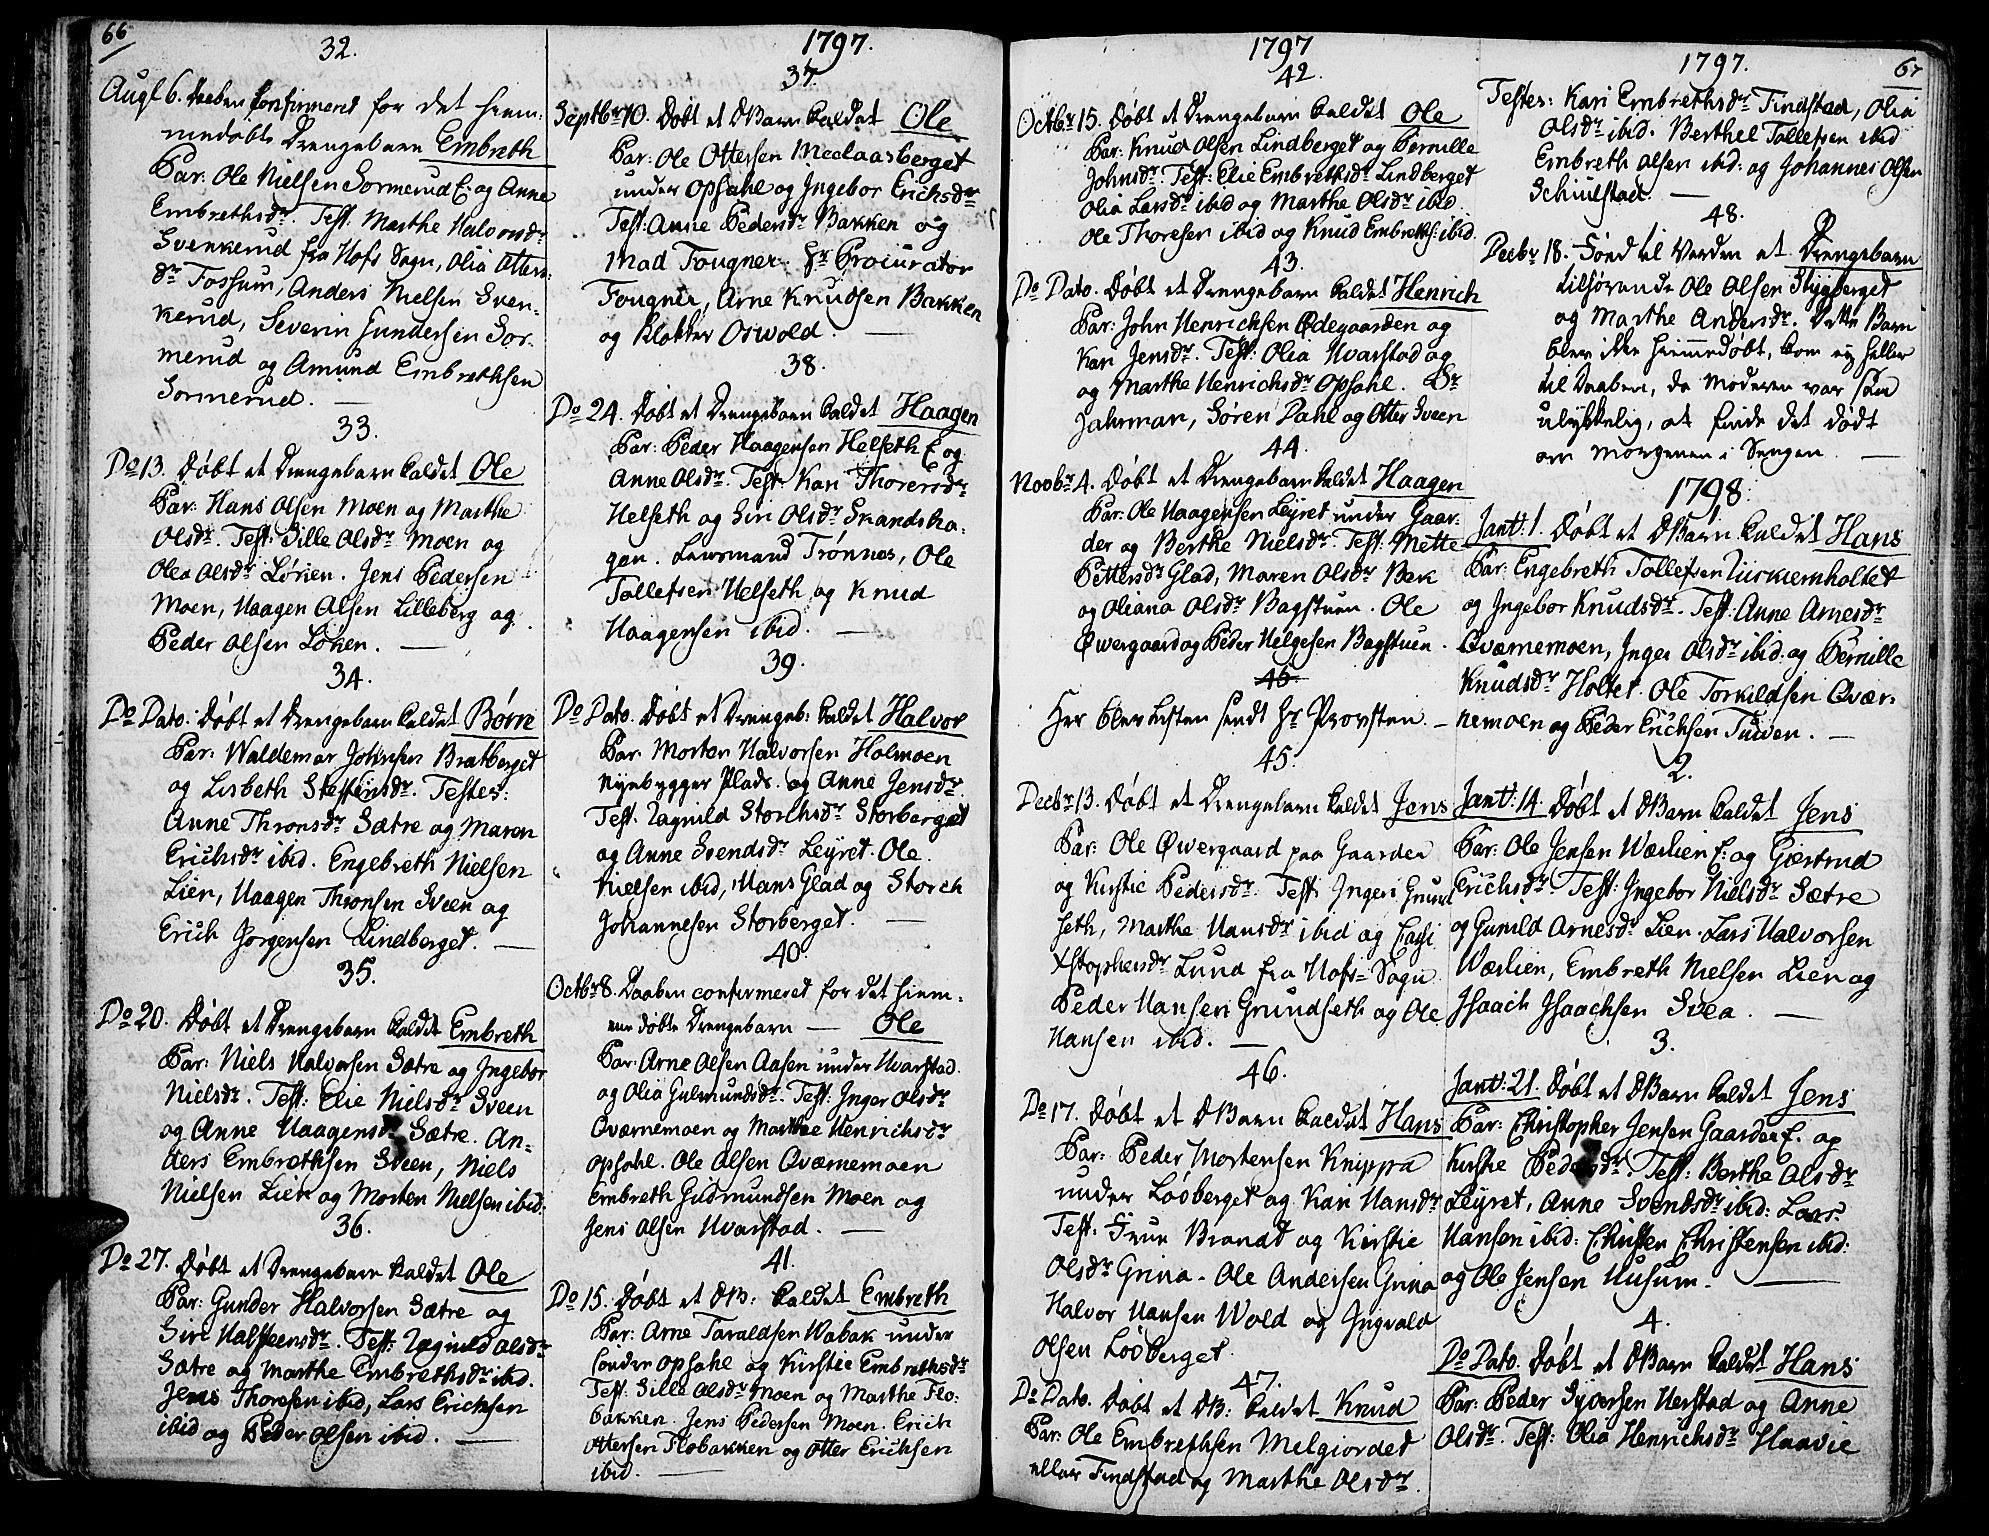 66
32.
Augt 6. Daaben confirmeret for det hiem-
medøbte Drengebarn Embreth
Par: Ole Nielsen Sormerud E: og Anne
Embrethsdr. Test. Marthe Halvorsdr
Svenkerud fra Hofs Sogn, Olia Otters-
dr Fossum, Anders Nielsen Sven-
kerud, Severin Gundersen Sor-
merud og Amund Embrethsen
Sormerud.
33.
Do 13. Døbt et Drengebarn kaldet Ole
Par: Hans Olsen Moen og Marthe
Olsdr. Test: Sille Olsdr Moen og
Olea Olsdr Løken. Jens Pedersen
Moen, Haagen Olsen Lilleberg og
Peder Olsen Løken.
34.
Do Dato. Døbt et Drengebarn kaldet Børre
Par: Waldemar Johnsen Bratberget
og Lisbeth Steffensdr. Testes:
Anne Thronsdr Sætre og Maren
Erichsdr ibid. Engebreth Nielsen
Lien, Haagen Thronsen Sveen og
Erich Jørgensen Lindberget.
35.
Do 20. Døbt et Drengebarn kaldet Embreth
Par: Niels Halvorsen Sætre og Ingebor
Nielsdr. Test: Elie Nielsdr Sveen
og Anne Haagensdr Sætre. An-
ders Embrethsen Sveen, Niels
Nielsen Lien og Morten Nielsen ibid:
36.
Do 27. Døbt et Drengebarn kaldet Ole
Par: Gunder Halvorsen Sætre og
Siri Halsteensdr. Test: Ragnild Olsdr
Sætre og Marthe Embrethsdr ibid.
Jens Thoresen ibid, Lars Erichsen
ibid og Peder Olsen ibid.
1797.
37.
Septbr 10. Døbt et DBarn kaldet Ole
Par: Ole Ottersen Meclaasberget
under Opsahl og Ingebor Erichsdr
Test: Anne Pedersdr Bakken og
Mad Fougner. Hr Procurator
Fougner, Arne Knudsen Bakken
og Klokker Oswold.
38.
Do 24. Døbt et Drengebarn kaldet Haagen
Par: Peder Haagensen Helseth E og
Anne Olsdr. Test: Kari Thoresdr
Helseth og Siri Olsdr Skandsha-
gen. Lensmand Trønnes, Ole
Tollefsen Helseth og Knud
Haagensen ibid.
39.
Do Dato. Døbt et Drengeb: kaldet Halvor
Par: Morten Halvorsen Holmoen
Nyebygger Plads. og Anne Jensdr
Test. Ragnild Storchsdr Storberget
og Anne Svendsdr Leyret. Ole
Nielsen ibid, Hans Glad og Storch
Johannesen Storberget.
40.
Octbr 8. Daaben confirmeret for det hiem-
me døbte Drengebarn — Ole
Par: Arne Olsen Aasen under Hvarstad
og Olia Gulmundsdr. Test: Inger Olsdr
Qværnemoen og Marthe Henrichsdr
Opsahl. Ole Olsen Qværnemoen
Embreth Gudmundsen Moen og
Jens Olsen Hvarstad.
41.
Do 15. Døbt et DB: kaldet Embreth
Par: Arne Taraldsen Wabak under
Sønder Opsahl og Kirstie Embrethsdr
Test: Sille Olsdr Moen og Marthe Flo-
bakken. Jens Pedersen Moen. Erich
Ottersen Flobakken og Otter Erichsen
ibid.
1797
42.
Octbr 15. Døbt et Drengebarn kaldet Ole
Par: Knud Olsen Lindberget og Pernille
Johnsdr. Test: Elie Embrethsdr Lindberget
Olia Larsdr ibid og Marthe Olsdr ibid.
Ole Thoresen ibid og Knud Embreths: ibid.
43.
Do Dato. Døbt et Drengebarn kaldet Henrich
Par: John Henrichsen Ødegaarden og
Kari Jensdr. Test: Olia Hvarstad og
og Marthe Henrichsdr Opsahl. Sr
Jahrman, Søren Dahl og Otter Sveen
44.
Novbr 4. Døbt et Drengebarn kaldet Haagen
Par: Ole Haagensen Leyret under Gaar-
der og Berthe Nielsdr. Test: Mette
Pettersdr Glad, Maren Olsdr Bek
og Oliana Olsdr Bagstuen. Ole
Øwergaard og Peder Helgesen Bagstuen.
45.
Her blev Listen sendt Hr Provsten.
45.
Decbr 13. Døbt et Drengebarn kaldet Jens
Par: Ole Øwergaard paa Gaarder
og Kirstie Pedersdr. Test: Ingeri Grund
seth, Marthe Hansdr ibid og
Xstophersdr Lund fra Hofs-Sogn
Peder Hansen Grundseth og Ole
Hansen ibid.
46.
Do 17. Døbt et DBarn kaldet Hans
Par: Peder Mortensen Knippa
under Løvberget og Kari Hansdr
Test: Frue Brandt og Kirstie
Olsdr Grina. Ole Andersen Grina
Halvor Hansen Wold og Ingvald
Olsen Løvberget.
47.
Do Dato. Døbt et DB: kaldet Knud
Par: Ole Embrethsen Melgiordet
eller Findstad og Marthe Olsdr.
1797.
67
Testes: Kari Embrethsdr Findstad, Olia
Olsdr ibid. Berthel Tollefsen ibid
Embreth Olsen ibid: og Johannes Olsen
Schiulstad.
48.
Decbr 18. Fød til Verden et Drengebarn
tilhørende Ole Olsen Stygberget
og Marthe Andersdr. Dette Barn
blev ikke hiemmedøbt, kom ey heller
til Daaben, da Moderen var saa
ulykkelig, at finde det dødt
om Morgenen i Sengen.
1798
Janv: 1. Døbt et DBarn kaldet Hans
Par: Engebreth Tollefsen
og Ingebor Knudsdr. Test: Anne Arnesdr
Qværnemoen, Inger Olsdr ibid: og Pernille
Knudsdr Holtet. Ole Torkildsen Qvær-
nemoen og Peder Erichsen Tuven.
2.
Janv: 14. Døbt et DBarn kaldet Jens
Par: Ole Jensen Wæslien E: og Giertrud
Erichsdr. Test: Ingebor Nielsdr Sætre
og Gunild Arnesdr Lien. Lars Halvorsen
Wæslien, Embreth Nielsen Lien og
Isaach Isaachsen Svea.
3.
Janv: 21. Døbt et DBarn kaldet Jens
Par: Christopher Jensen Gaarder E. og
Kirstie Pedersdr. Test: Berthe Olsdr
Leyret, Anne Svendsdr ibid: Lars
Hansen ibid: Christen Christensen ibid:
og Ole Jensen Husum.
4.
Do Dato. Døbt et DBarn kaldet Hans
Par: Peder Syversen Herstad og Anne
Olsdr. Test: Olia Henrichsdr Haavie